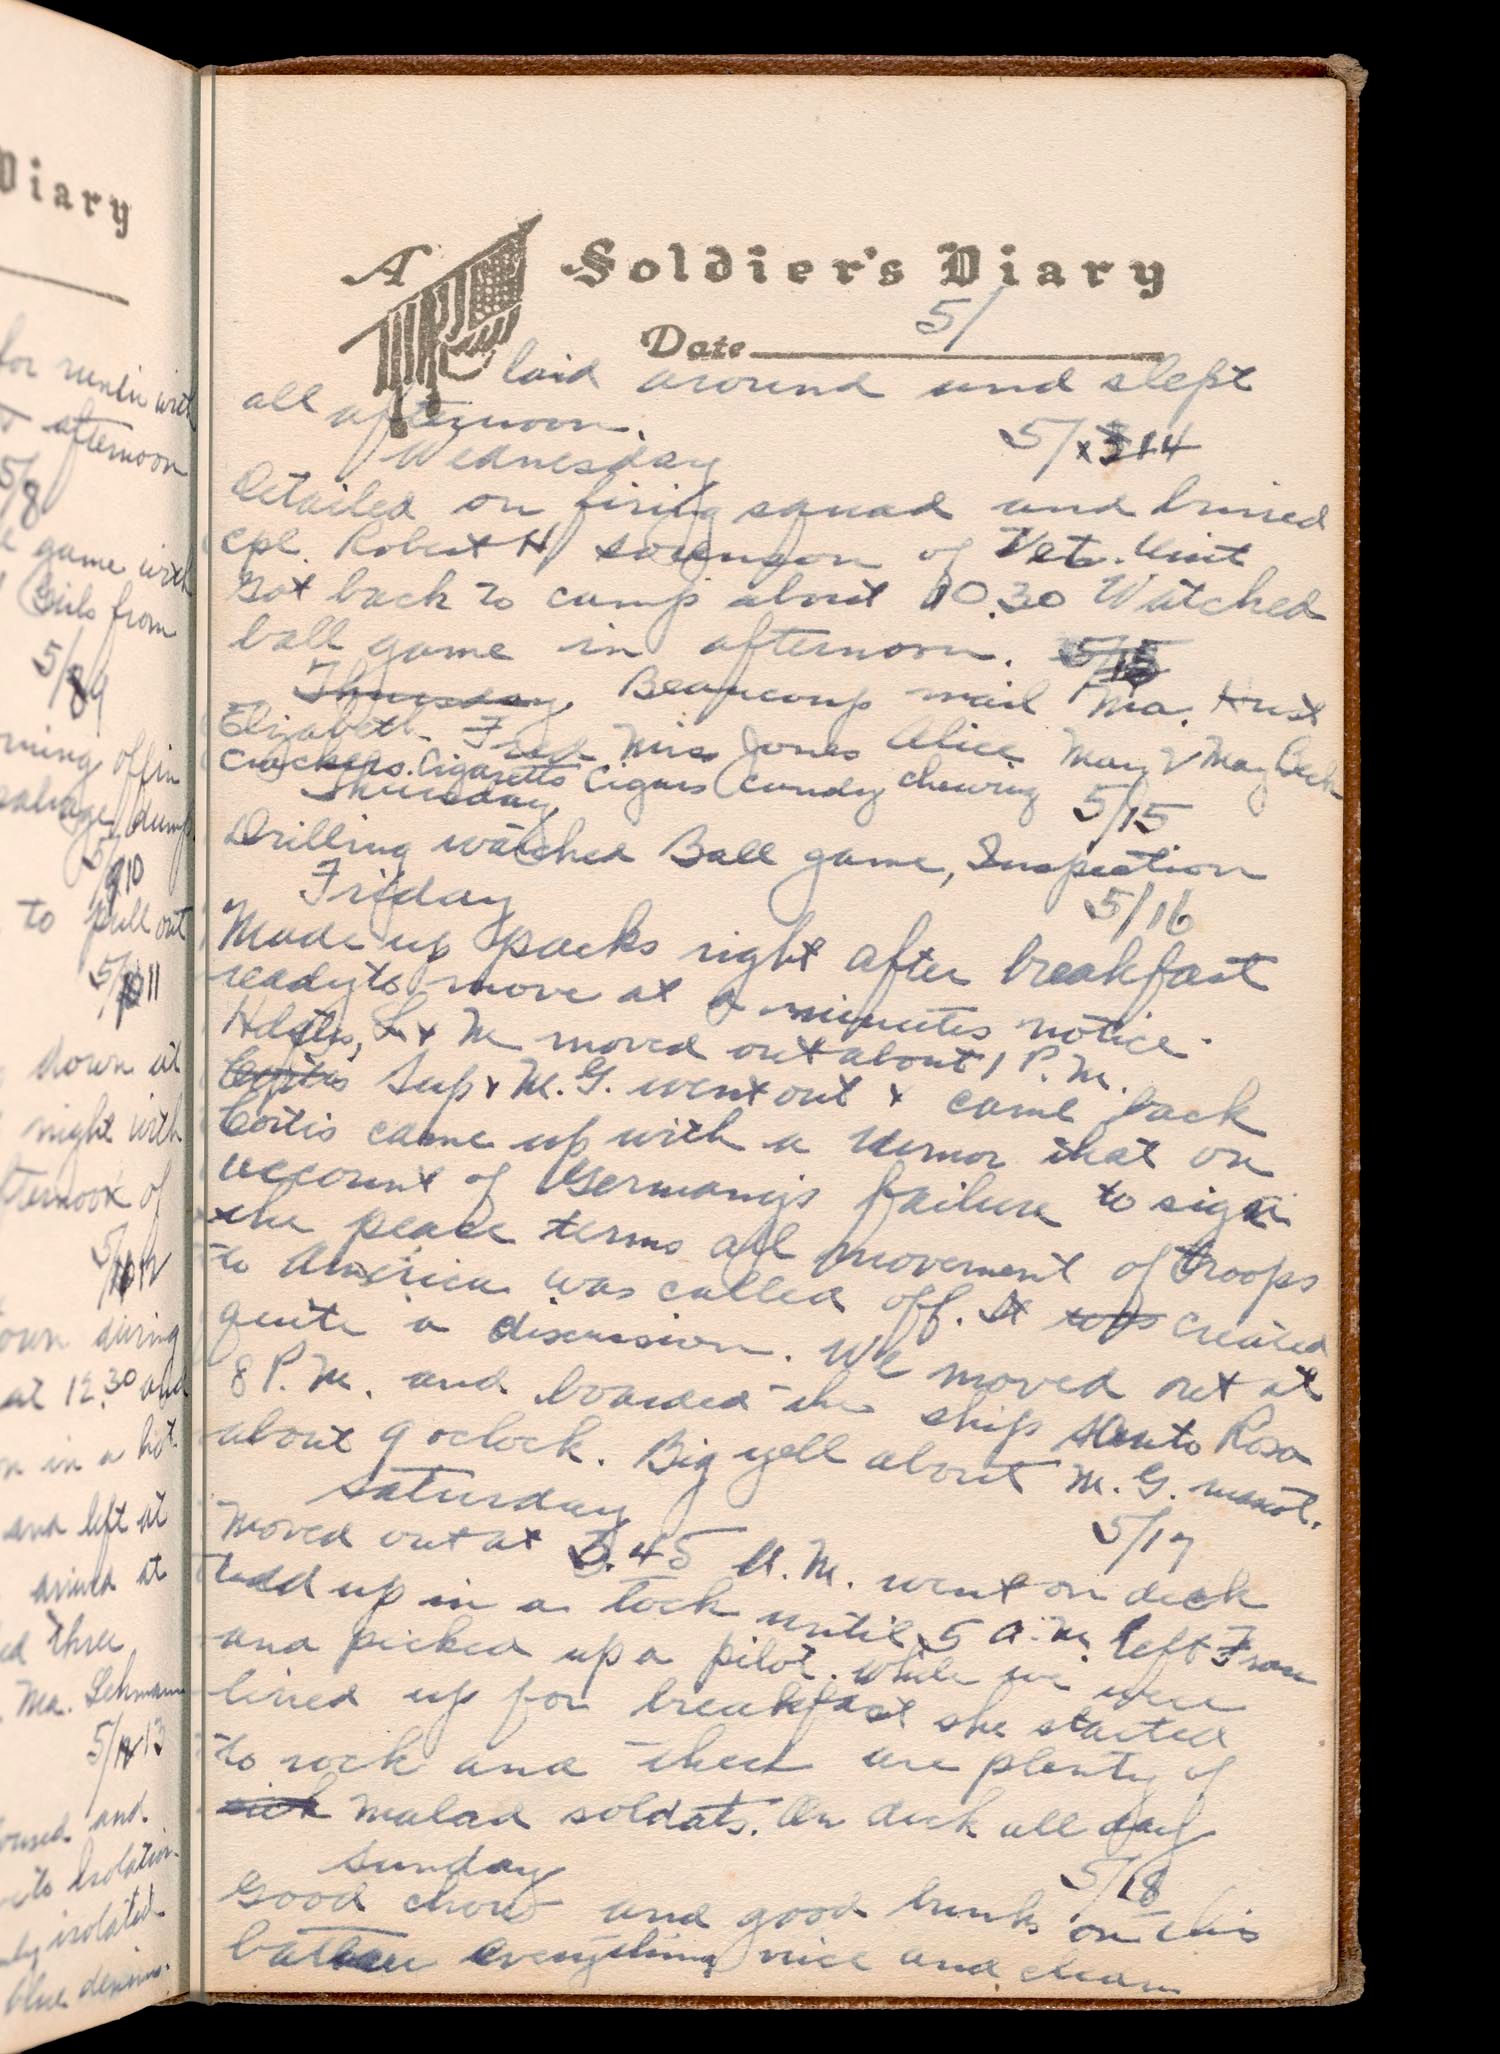 Diary
for
with
afternoon
5/8
game with
Girls from
5/9
off in
salvage dump
5/10
to pull out
5/11
down at
night with
afternoon of
5/12
during
at 12.30 and
in a
and left at
arrived at
three
Ma. Lehmann
5/13
and
to Isolation
isolated
blue denims.
A Soldier's Diary
Date 5/
laid around and slept
all afternoon.
Wednesday 5/14
Detailed on firing squad and buried
Cpl. Robert H. Sorenson of Vet. Unit
Got back to camp about 10.30 Watched
ball game in afternoon. 5/15
Thursday. Beaucoup mail Ma.
Elizabeth Fred Miss Jones Alice May & May
Crackers. Cigaretts Cigars Candy chewing
Thursday 5/15
Drilling watched Ball game, Inspection
Friday 5/16
Made up packs right after breakfast
ready to move at a minutes notice.
Hdqtrs, L & M moved out about 1 P.M.
Coitis Sup & M.G. went out & came back
Coitis came up with a rumor that on
account of Germanys failure to sign
the peace terms all movement of troops
to America was called off. It was created
quite a discussion. We moved out at
8 P.M. and boarded the ship Santa Rosa
about 9 oclock. Big yell about M.G.
Saturday 5/17
Moved out at 3.45 A.M. went on deck
up in a lock until 5 A.M. left France
and picked up a pilot. While we were
lined up for breakfast she started
to rock and there are plenty of
sick malad soldats. On deck all day
Sunday 5/18
Good chow and good bunks on this
batteau everything nice and clean